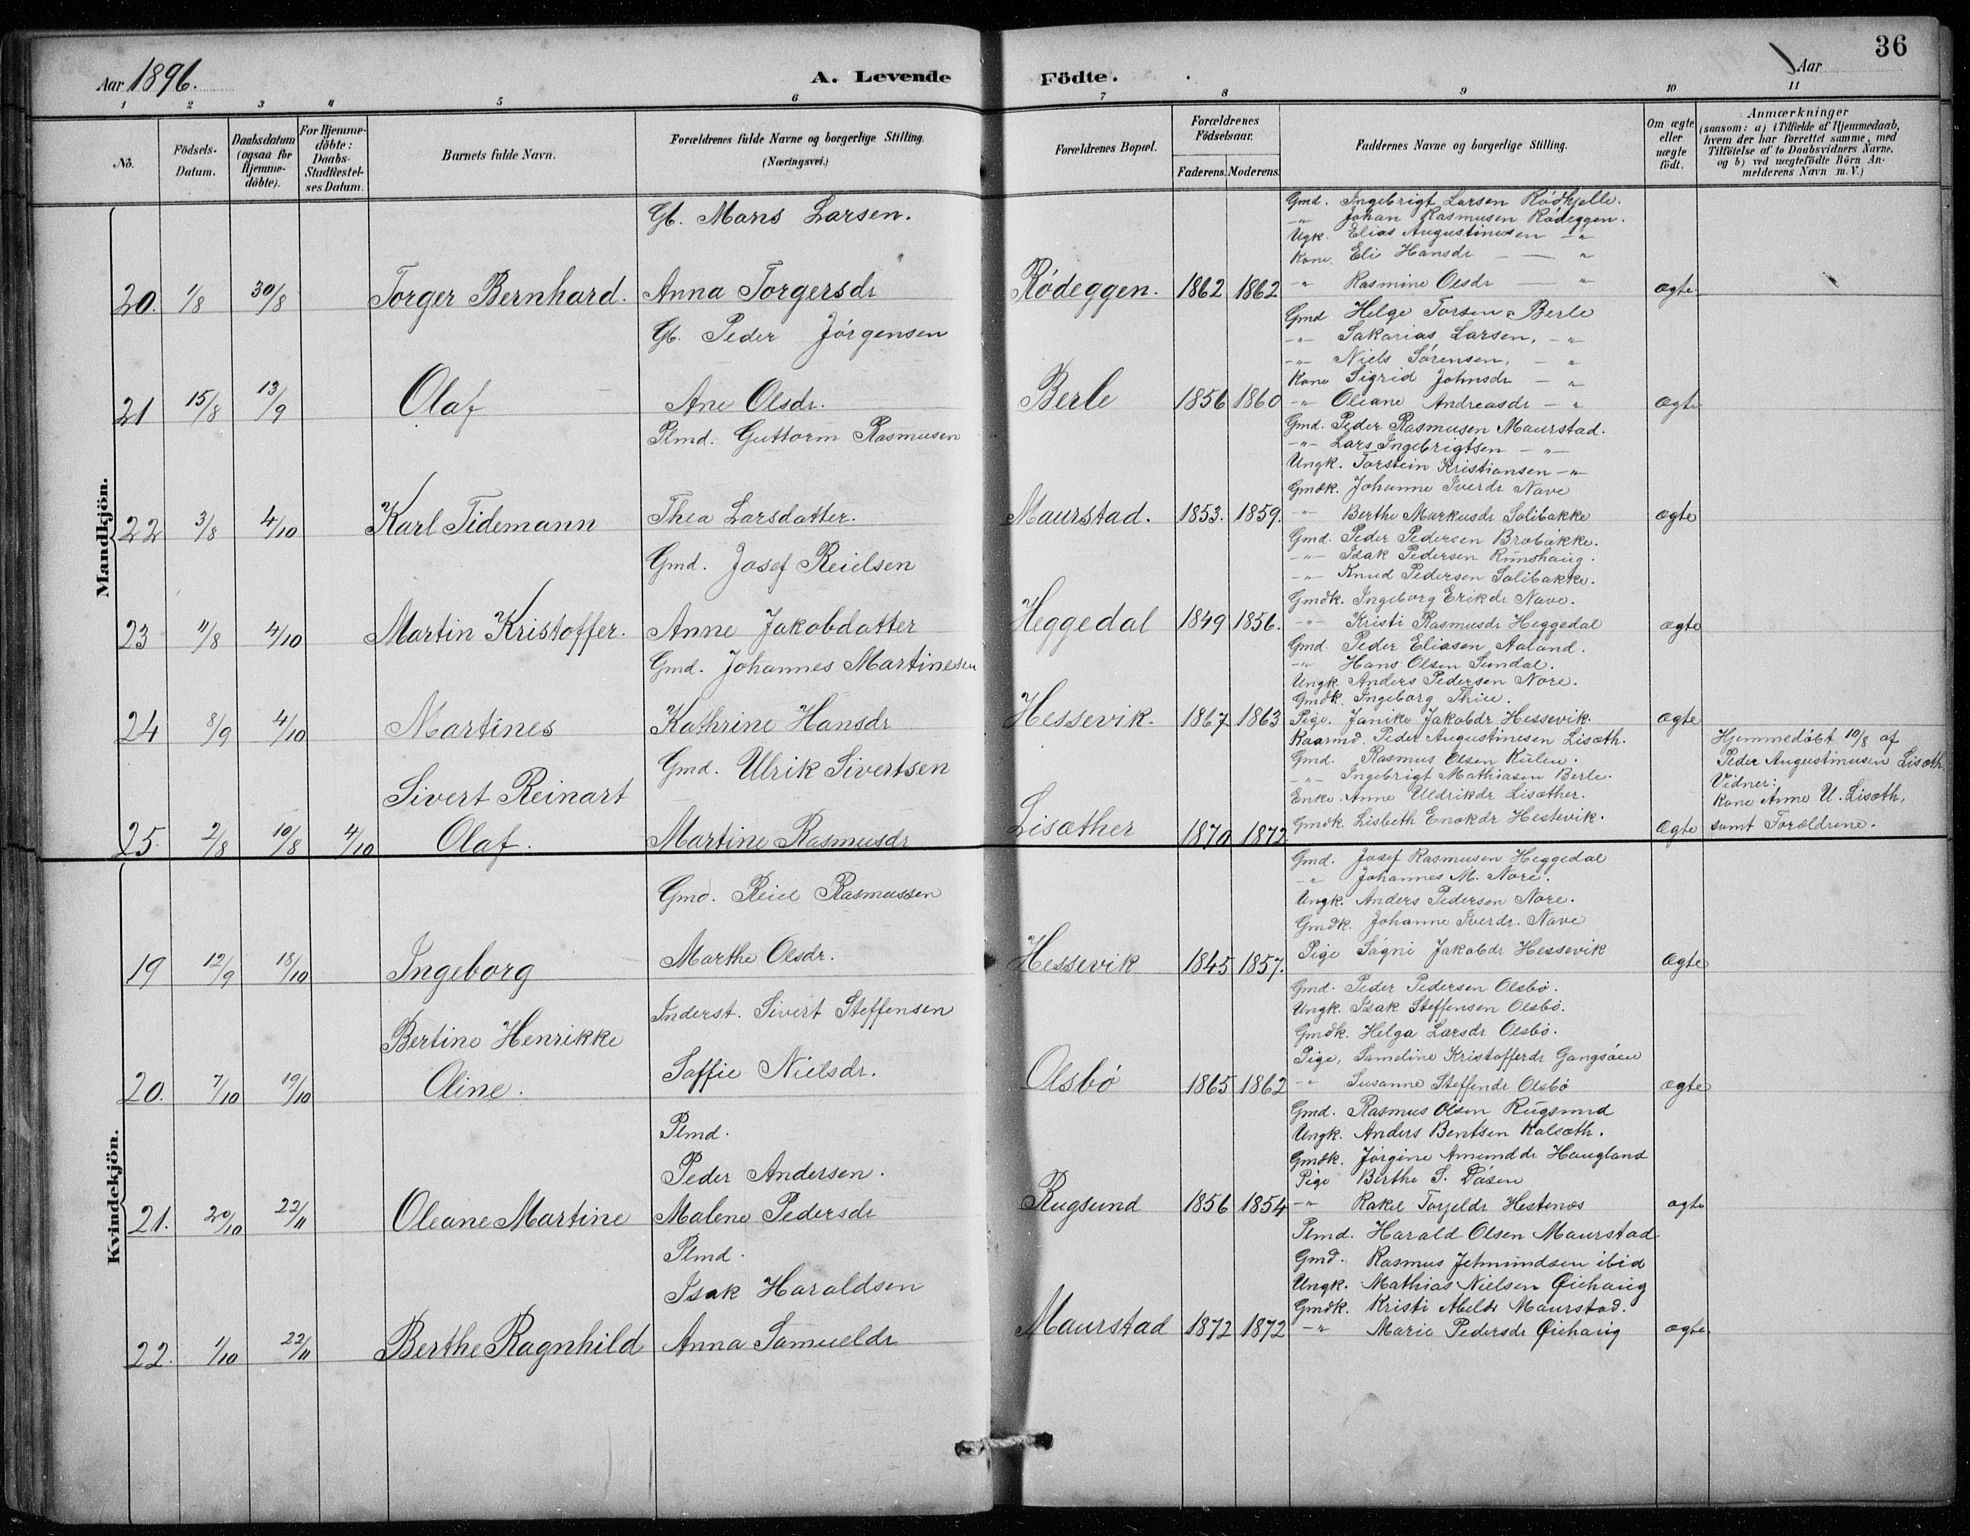 36
Aar 1896. A. Levende Födte. Aar
1 2 3 4 5 6 7 8 9 10 11
No.
Födsels-Datum.
Daabsdatum (ogsaa for Hjemmedöbte).
For Hjemmedöbte: Daabs-Stadfæstelses Datum.
Barnets fulde Navn.
Forældrenes fulde Navne og borgerlige Stilling. (Næringsvei.)
Forældrenes Bopæl.
Forældrenes Födselsaar.
Faderens. Moderens.
Faddernes Navne og borgerlige Stilling.
Om ægte eller uægte födt.
Anmærkninger
(saasom: a) i Tilfælde af Hjemmedaab, hvem der har forrettet samme, med Tilföielse af to Daabsvidners Navne, og b) ved uægtefödte Börn Anmelderens Navn m. V.)
Mandkjön.
20. 1/8 30/8 Torger Bernhard.
Gb. Mons Larsen.
Anna Torgersdr
Rödeggen. 1862 1862
Gmd. Ingebrigt Larsen Rödhjelle.
-"- Johan Rasmusen Rödeggen.
Ugk. Elias Augustinusen - "
Kone Eli Hansdr - "
-"- Rasmine Olsdr - "
ægte
21 15/8 13/9 Olaf
Gb. Peder Jörgensen
Ane Olsdr.
Berle 1856 1860
Gmd Helge Torsen Berle
-"- Sakarias Larsen, - "
-"- Niels Sörensen, - "
Kone Sigrid Johnsdr - "
-"- Oleane Andreasdr - "
Ægte
22 3/8 4/10 Karl Tidemann
Plmd. Guttorm Rasmusen
Thea Larsdatter.
Maurstad. 1853. 1859.
Gmd. Peder Rasmusen Maurstad.
-"- Lars Ingebrigtsen - "-
Ungk. Torstein Kristiansen -"-
Gmdk. Johanne Iverdr Nave
-"- Berthe Markusdr Solibakke
Ægte
23 11/8 4/10 Martin Kristoffer.
Gmd. Josef Reielsen
Anne Jakobdatter
Heggedal 1849 1856.
Gmd. Peder Pedersen Brobakke.
-"- Isak Pedersen Rundhaug.
-"- Knud Pedersen Solibakke.
Gmdk. Ingeborg Erikdr Nave.
-"- Kristi Rasmusdr Heggedal
ægte
24 8/9 4/10 Martines
Gmd. Johannes Martinesen
Kathrine Hansdr
Hessevik. 1867 1863
Gmd. Peder Eliasen Aaland.
-"- Hans Olsen Sundal.
Ungk. Anders Pedersen Nore.
Gmdk. Ingeborg
Pige. Janike Jakobdr Hessevik.
ægte
25. 2/8 10/8 4/10 Sivert Reinart
Olaf.
Gmd. Ulrik Sivertsen
Martine Rasmusdr
Lisæther 1870 1872
Kaarmd. Peder Augustinesen Lisæth.
Gmd. Rasmus Olsen
-"- Ingebrigt Mathiasen Berle.
Enke. Anne Uldrikdr Lisæther.
Gmdk. Lisbeth Enokdr Hestevik.
Ægte
Hjemmedöbt 10/8 af
Peder Augustinusen Lisæth.
Vidner:
Kone Anne U. Lisæth,
samt Forældrene.
Kvindekjön.
19 12/9 18/10 Ingeborg
Gmd. Reiel Rasmussen
Marthe Olsdr.
Hessevik 1845 1857.
Gmd. Josef Rasmusen Heggedal
-"- Johannes M. Nore.
Ungk. Anders Pedersen Nore.
Gmdk. Johanne Iverdr. Nave
Pige Sagni Jakobdr Hessevik
Ægte
20. 7/10 19/10 Bertine Henrikke
Oline.
Inderst. Sivert Steffensen
Soffie Nielsdr.
Olsbö 1865 1862
Gmd. Peder Pedersen Olsbö.
Ungk. Isak Steffensen Olsbö.
Gmdk. Helga Larsdr Olsbö.
Pige, Sameline Kristofferdr Gangsöen
-"- Susanne Steffendr Olsbö
ægte
21. 20/10 22/11 Oleane Martine
Plmd.
Peder Andersen.
Malene Pedersdr
Rugsund 1856 1854
Gmd. Rasmus Olsen Rugsund
Ungk. Anders Bentsen Kalsæth.
Gmdk. Jörgine Amunddr Haugland
Pige Berthe S.
-"- Rakel Torjeldr Hestenæs
ægte
22. 1/10 22/11 Berthe Ragnhild
Plmd.
Isak Haraldsen
Anna Samueldr
Maurstad 1872 1872
Plmd. Harald Olsen Maurstad
Gmd. Rasmus Jetmundsen ibid
Ungk. Mathias Nielsen Öiehaug
Gmdk. Kristi Abeldr Maurstad.
-"- Marie Pedersdr Öiehaug
ægte.